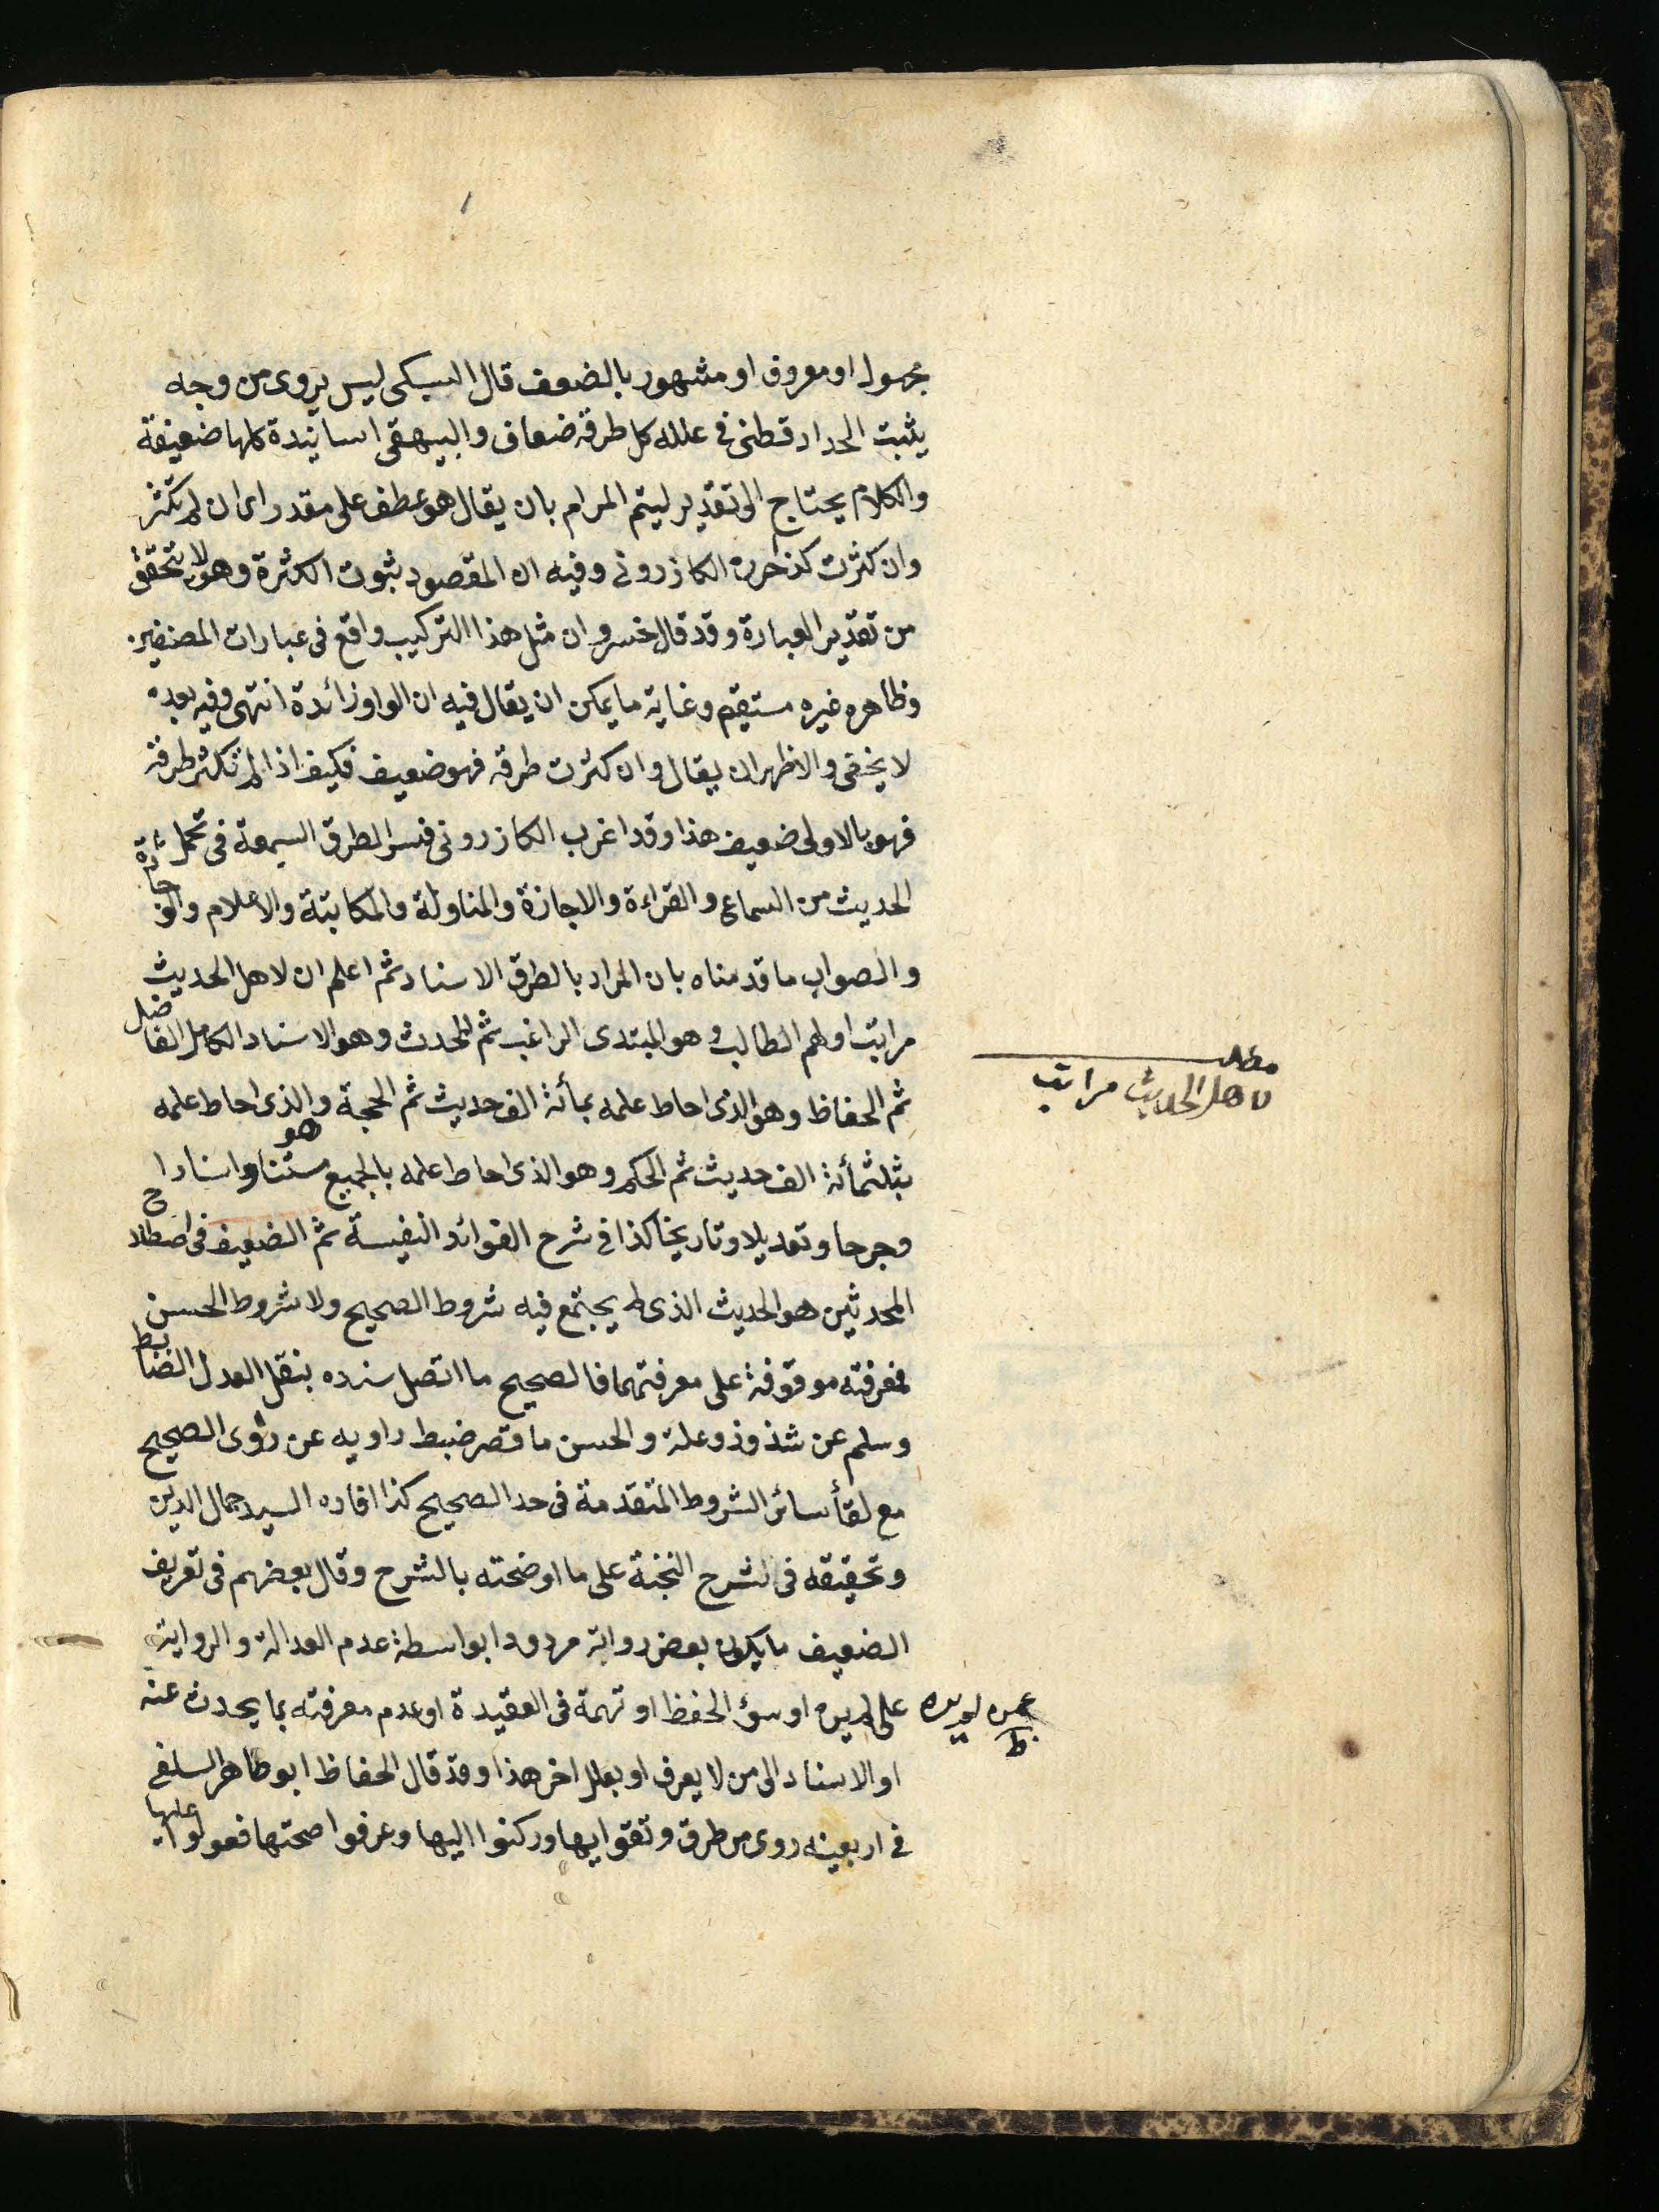 مجهول او معروف او مشهور بالضعف قال السبكى ليس يروى من وجه
يثبت الدارقطنى فى علله كل طرقه ضعاف والبيهقى اسانيدة كلها ضعيفة
والكلام يحتاج الى تقدير ليتم المرام بان يقال هو عطف على مقدر اى ان لم تكثر
وان كثرت كذا حرره الكازرونى وفيه ان المقصود ثبوت الكثرة وهو لا يتحقق
من تقدير العبارة وقد قال خسرو ان مثل هذا التركيب واقع فى عبارات المصنفين
وظاهره غيره مستقيم وغاية ما يمكن ان يقال فيه ان الواو زائدة انتهى وفيه بعد
لا يخفى والاظهر ان يقال وان كثرت طرقه فهو ضعيف فكيف اذا لم تكثر طرقه
فهو بالاولى ضعيف هذا وقد اغرب الكازرونى ففسر الطرق السبعة فى تحمل
الحديث من السماع والقراءة والاجازة والمناولة والمكاتبة والاعلام والوجادة
والصواب ما قدمناه بان المراد بالطرق الاسناد ثم اعلم ان لاهل الحديث
مراتب اولهم الطالب وهو المبتدى الراغب ثم المحدث وهو الاستاد الكامل الفاضل
ثم الحفاظ وهو الذى احاط علمه بمأئة الف حديث ثم الحجة والذى احاط علمه
بثلثمأئة الف حديث ثم الحكم وهو الذى احاط علمه بالجميع متنا واسنادا
وجرحا وتعديلا وتاريخا كذا فى شرح الفوائد النفيسة ثم الضعيف فى اصطلاح
المحدثين هو الحديث الذى لم يجتمع فيه شروط الصحيح ولا شروط الحسن
فمعرفته موقوفة على معرفتهما فالصحيح ما اتصل سنده بنقل العدل الضابط
وسلم عن شذوذ وعلة والحسن ما قصر ضبط راويه عن رؤى الصحيح
مع لقأ سائر الشروط المتقدمة فى حد الصحيح كذا افاده السيد جمال الدين
وتحقيقه فى شرح النخبة على ما اوضحته بالشرح وقال بعضهم فى تعريف
الضعيف ما يكون بعض رواته مردودا بواسطة عدم العدالة والرواية
او سؤ الحفظ او تهمة فى العقيدة او عدم معرفته بما يحدث عنه
او الاسناد الى من لا يعرف او بعلل اخر هذا وقد قال الحفاظ ابو طاهر السلفى
فى اربعينه روى من طرق وثقوا بها وركنوا اليها وعرفوا صحتها فعولوا عليها
مطلب
لاهل الحديث مراتب